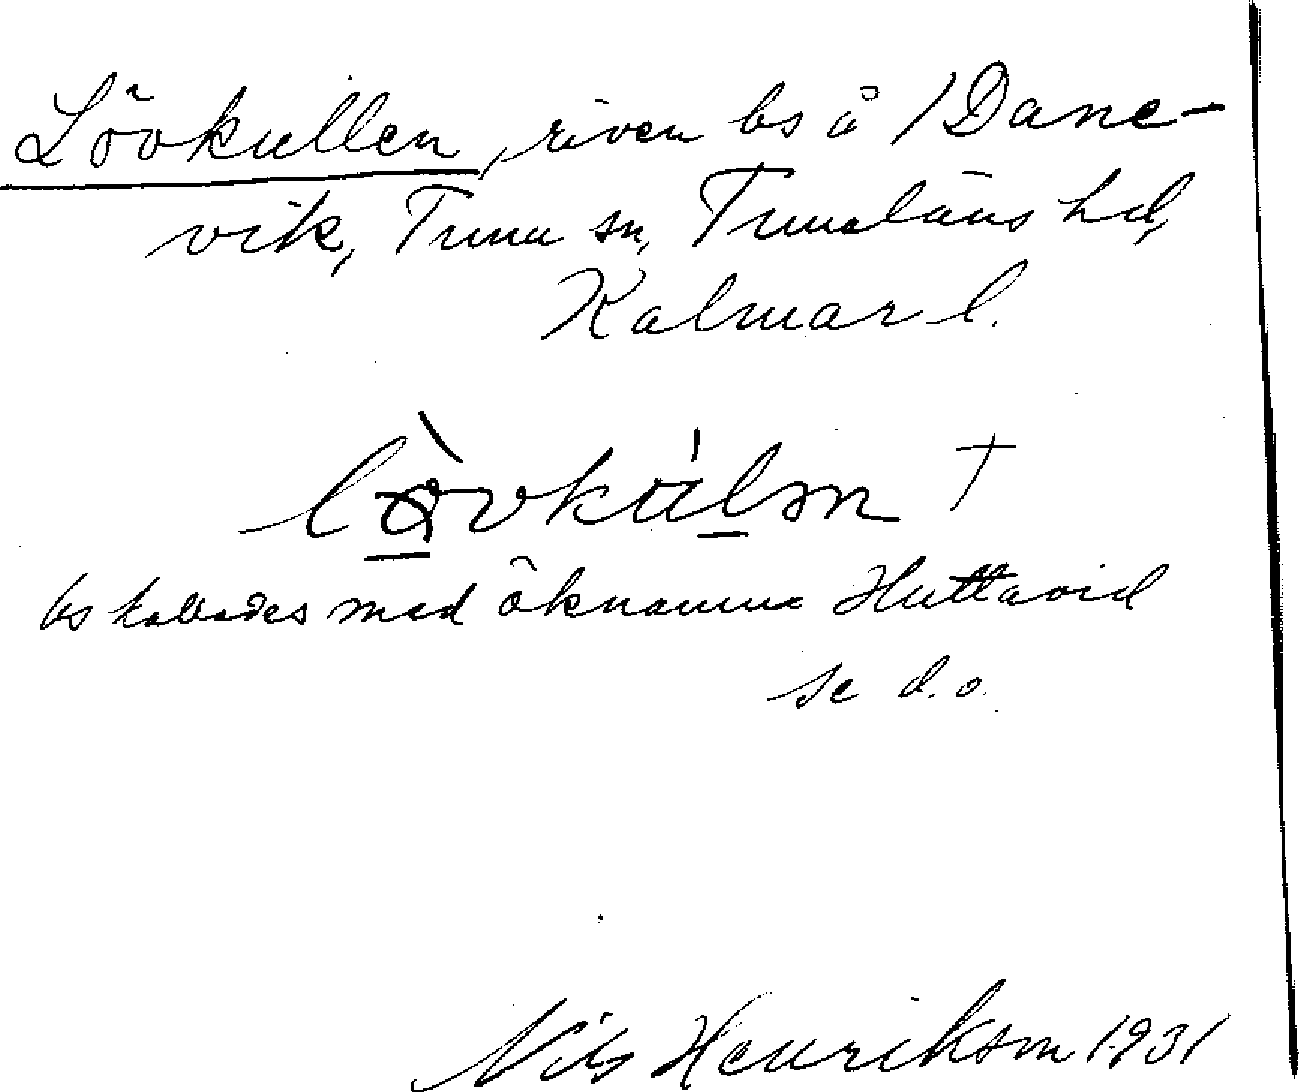 Lövkullen, riven bs å 1 Dane-
vik, Tuna sn, Tunaläns hd,
Kalmar l.
lòvkúlən †
bs kallades med öknamn Huttavid
se d.o.
Nils Henrikson 1931